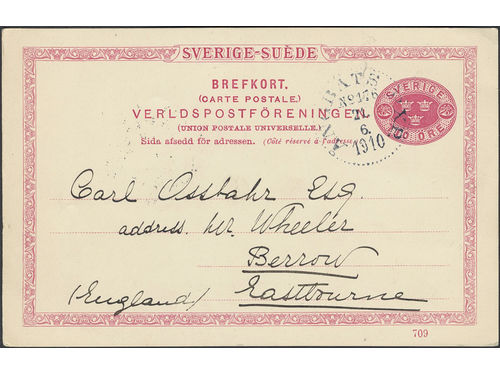 SVERIGE-SUÈDE
BREFKORT.
(CARTE POSTALE.)
VERLDSPOSTFÖRENINGEN
(UNION POSTALE UNIVERSELLE.)
Sida afsedd för adressen. (Côté réservé à l'adresse.)
SVERIGE
TIO ÖRE.
ÅNGBÅTS
No 176
21
6
1910
Carl Ossbahr Esq.
address. Mr. Wheeler
Berrow
(England) Eastbourne
709